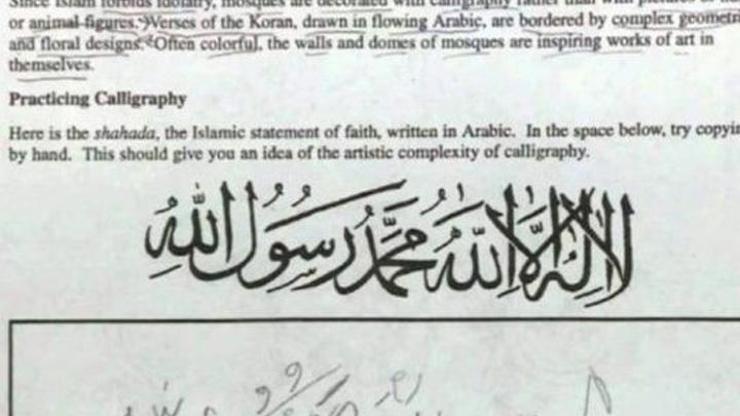 Since Islam forbids idolatry, mosques are decorated with calligraphy rather than with pictures of
or animal figures. Verses of the Koran, drawn in flowing Arabic, are bordered by complex geometri
and floral designs. Often colorful, the walls and domes of mosques are inspiring works of art in
themselves.
Practicing Calligraphy
Here is the shahada, the Islamic statement of faith, written in Arabic. In the space below, try copyin
by hand. This should give you an idea of the artistic complexity of calligraphy.
لا إله إلا الله محمد رسول الله